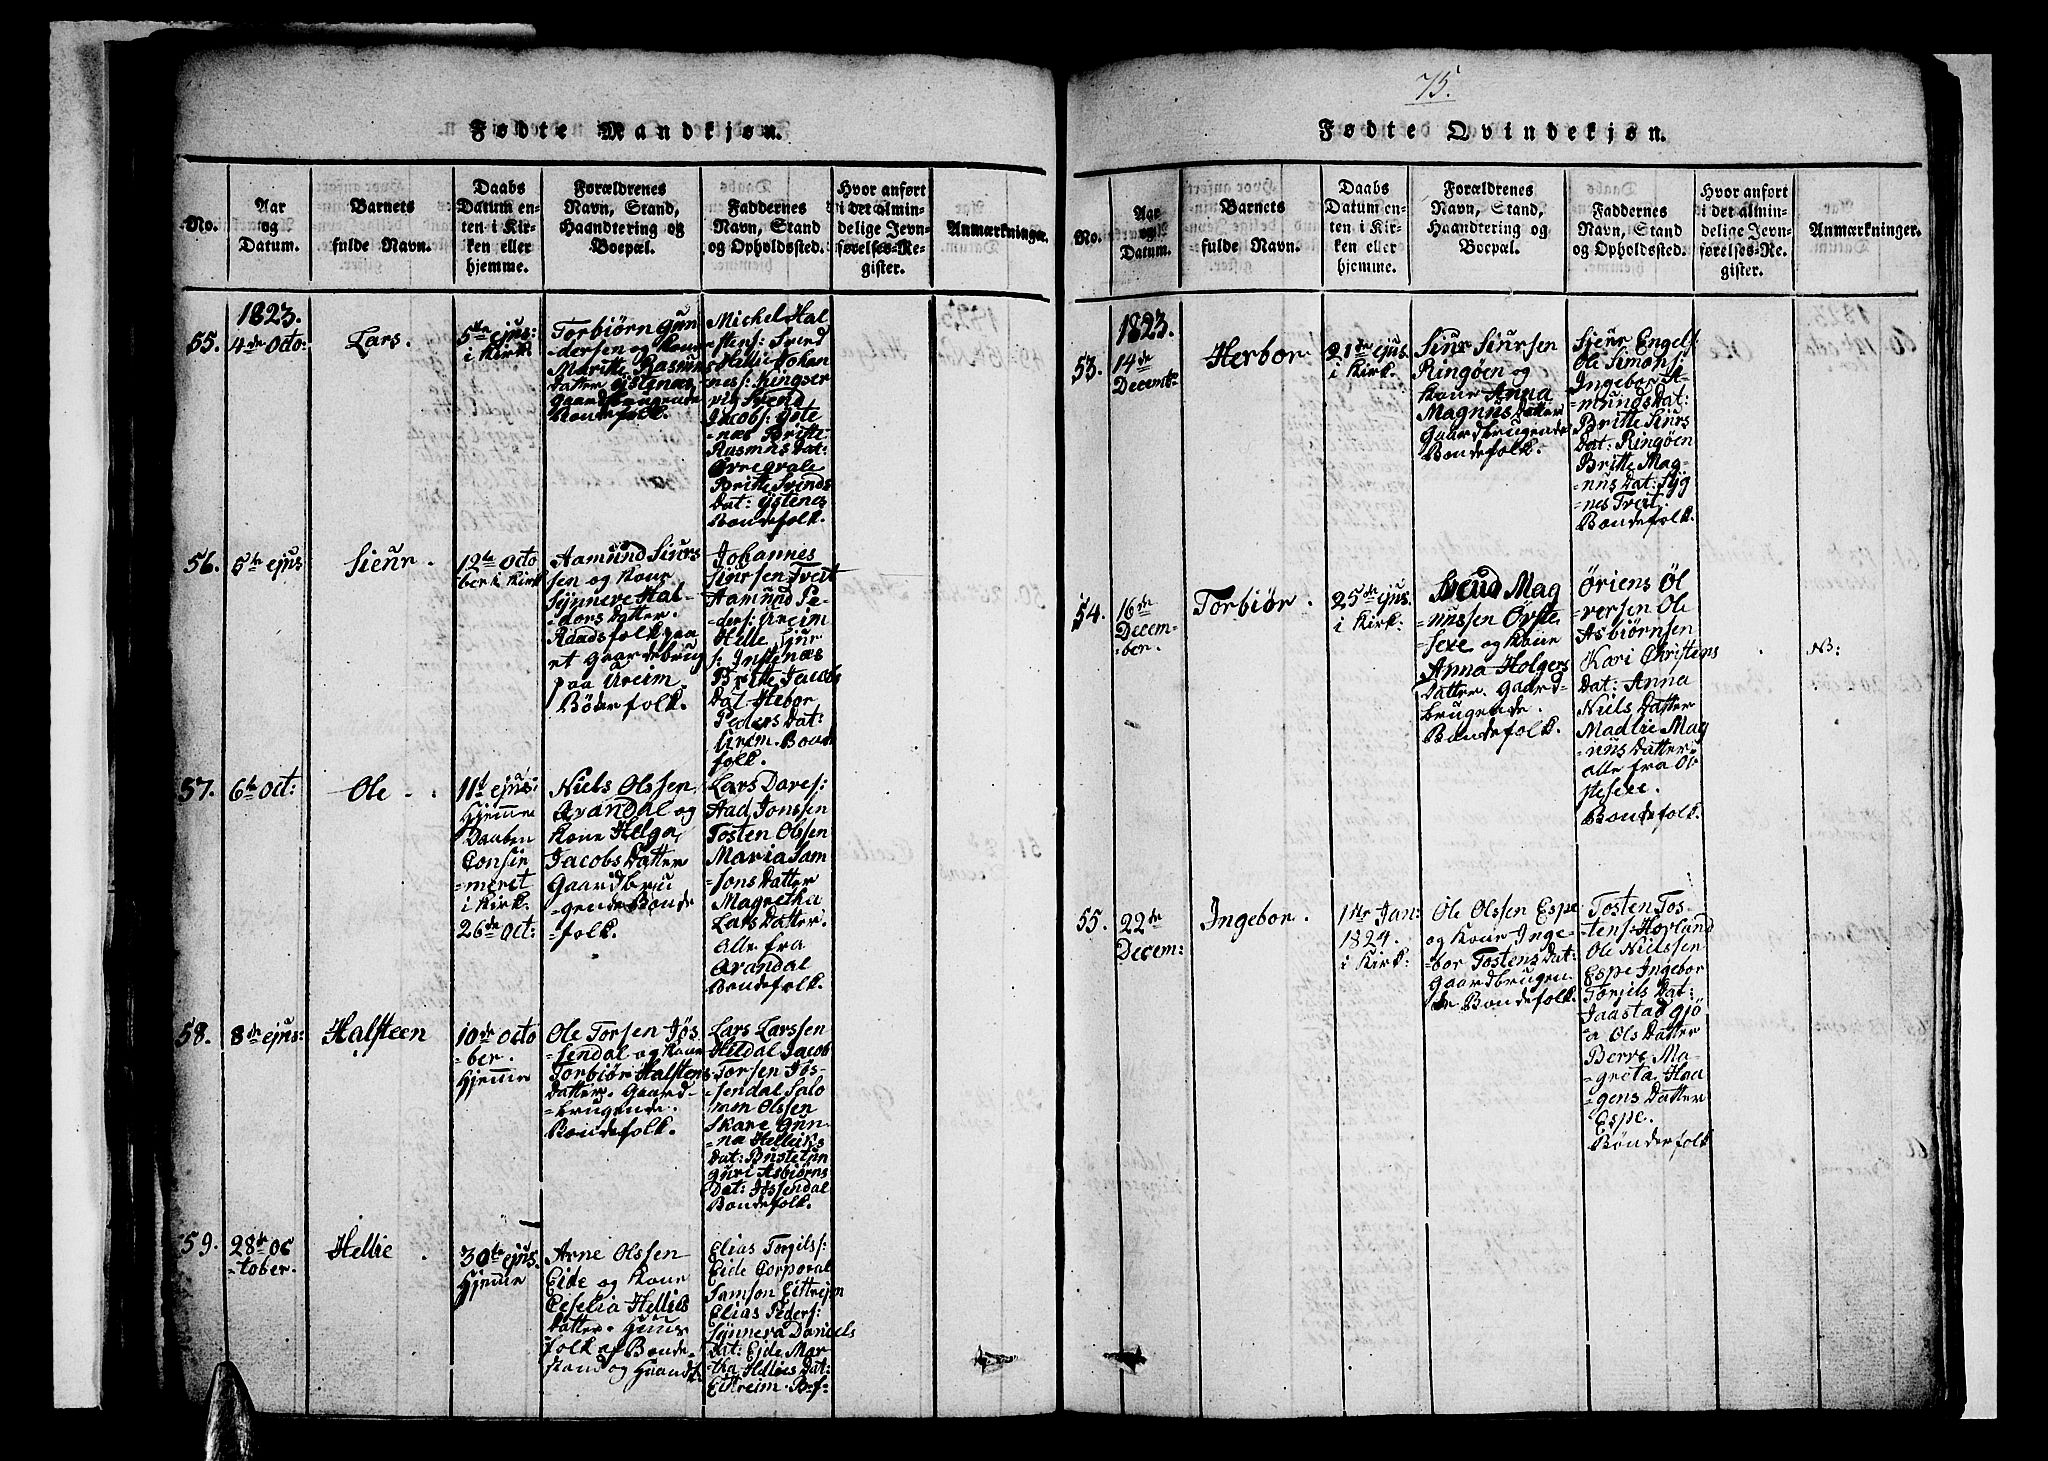 Fødte Mandkjøn.
No.
Aar
og
Datum.
Barnets
fulde Navn.
Daabs
Datum en-
ten i Kir-
ken eller
hjemme.
Forældrenes
Navn, Stand,
Haandtering og
Boepæl.
Faddernes
Navn, Stand
og Opholdssted.
Hvor anført
i det almin-
delige Jevn-
førelses-Re-
gister.
Anmærkninger.
1823.
55.
4de Octo:
Lars.
5te ejus:
i Kirk:
Torbiörn Gun
dersen og Kone
Maritte Rasmus
Datter Ystenæs
Gaardbrugende
Bondefolk.
Michel Hal
stens: Svend
Hallie Johan
nes: Kingser
vig Svend
Jacobs: Yste
=næs Britte
Rasmus Dat:
Britte Svends
Dat: Ystenes
Bondefolk.
56.
5te ejus
Sieur.
12te Octo
ber i Kirk
Aamund Siurs
sen og Kone
Synneve Hal-
=dors Datter.
Raadsfolk paa
et Gaardebrug
paa Ureim.
Bönderfolk.
Johannes
Siursen Tveit
Aamund Pe-
ders: Ureim
Helle Siur
s: Instenæs
Britte Jacobs
Dat Hebor
Peders Dat:
Ureim. Bonde
folk.
57.
6te Oct:
Ole.
11te ejus:
Hjemme
Daaben
Consir
=meret
i Kirk.
26de Oct:
Niels Olssen
Aradal og
Kone Helga
Jacobs Datter
Gaardbru
=gende Bonde
=folk.
Lars Dares:
Aad Jonssen
Tosten Olssen
Maria Sam
=sons Datter
Magretha
Lars Datter.
alle fra
Arandal
Bondefolk.
58.
8de ejus:
Halsteen
10de Octo
=ber.
Hjemme
Ole Torsen Jös
=sendal og Kone
Torbiör Halstens
Datter. Gaard-
=brugende.
Bondefolk.
Lars Larssen
Hildal Jacob
Torsen Jös-
=sendal Salo
mon Olssen
Skare Gun
=na Helliks
Dat: Bustetun
Guri Asbiörns
Dat: Jössendal
Bondefolk.
59.
28de Oc
=tober.
Hellie
30te ejus.
Hjemme
Arne Olssen
Eide og Kone
Ceselia Hellies
Datter. Huus
folk af Bonde-
stand og Haandt:
Elias Torgils:
Eide Corporal
Samson Eitrejm
Elias Peders:
Synnera Daniels
Dat: Ejde Mar
tha Hellies Dat:
Eitreim. B=f=
75.
Fødte Qvindekjøn.
No.
Aar
og
Datum.
Barnets
fulde Navn.
Daabs
Datum en-
ten i Kir-
ken eller
hjemme.
Forældrenes
Navn, Stand,
Haandtering og
Boepæl.
Faddernes
Navn, Stand
og Opholdssted.
Hvor anført
i det almin-
delige Jevn-
førelses-Re-
gister.
Anmærkninger.
1823.
53.
14de
Decemb:
Herbor
21de ejus.
i Kirk.
Siur Siursen
Ringöen og
Kone Anna
Magnus Datter
Gaardbrugende
Bondefolk.
Sjeur Engels:
Ole Simons:
Ingebor A-
=munds Dat:
Britte Siurs
Dat: Ringöen
Britte Mag-
=nus Dat: Syg
nes Tveit.
Bondefolk.
54.
16de
Decem=
=ber.
Torbiör.
25de ejus.
i Kirk:
Svend Mag
=nussen Öyste
=sexe og Kone
Anna Holgers
Datter. Gaard-
brugende.
Bondefolk.
Öriens Öl
=versen Ole
Asbiörnsen
Kari Christens
Dat: Anna
Niels Datter
Madlie Mag
=nus Datter.
alle fra Ol
Bondefolk.
NB:
55.
22de
Decem:
Ingebor.
1ste Jan:
1824.
i Kirk:
Ole Olssen Espe
og Kone Inge-
=bor Tostens Dat:
Gaardbrugen
de Bondefolk.
Tosten Tos-
tens: Hovland
Ole Nielssen
Espe Ingebor
Torgils Dat:
Jaastad Gjö
=a Ols Datter
Berve Ma-
=greta Haa
=gens Datter
Espe.
Bönderfolk